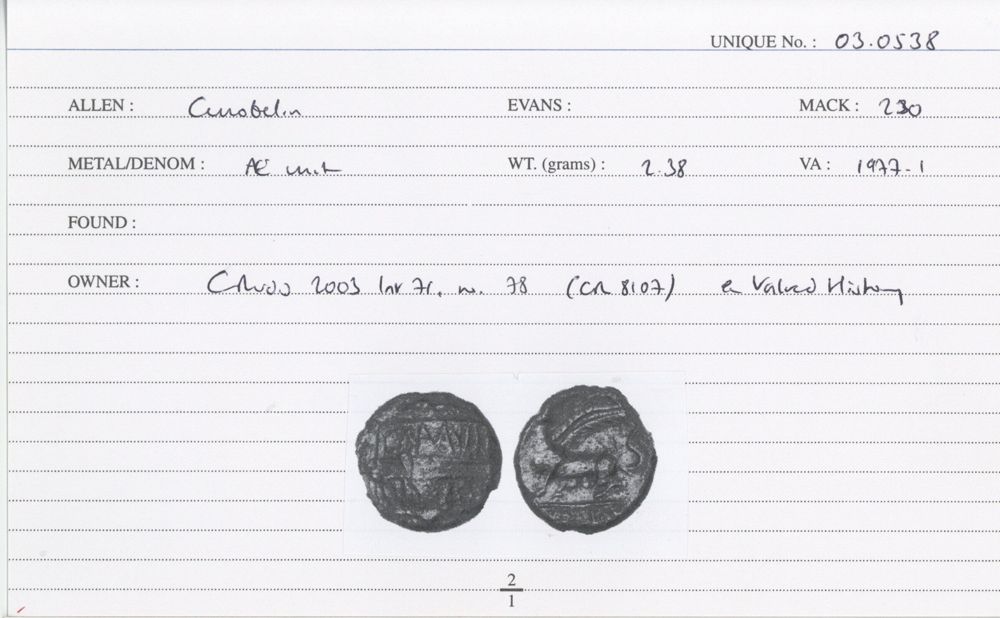 UNIQUE No. : 03.0538
ALLEN : Cunobelin EVANS : MACK : 230
METAL/DENOM : AE unit WT. (grams) : 2.38 VA : 1977-1
FOUND :
OWNER : 2003 no. 78 (CR 8107) Valued History
2
1